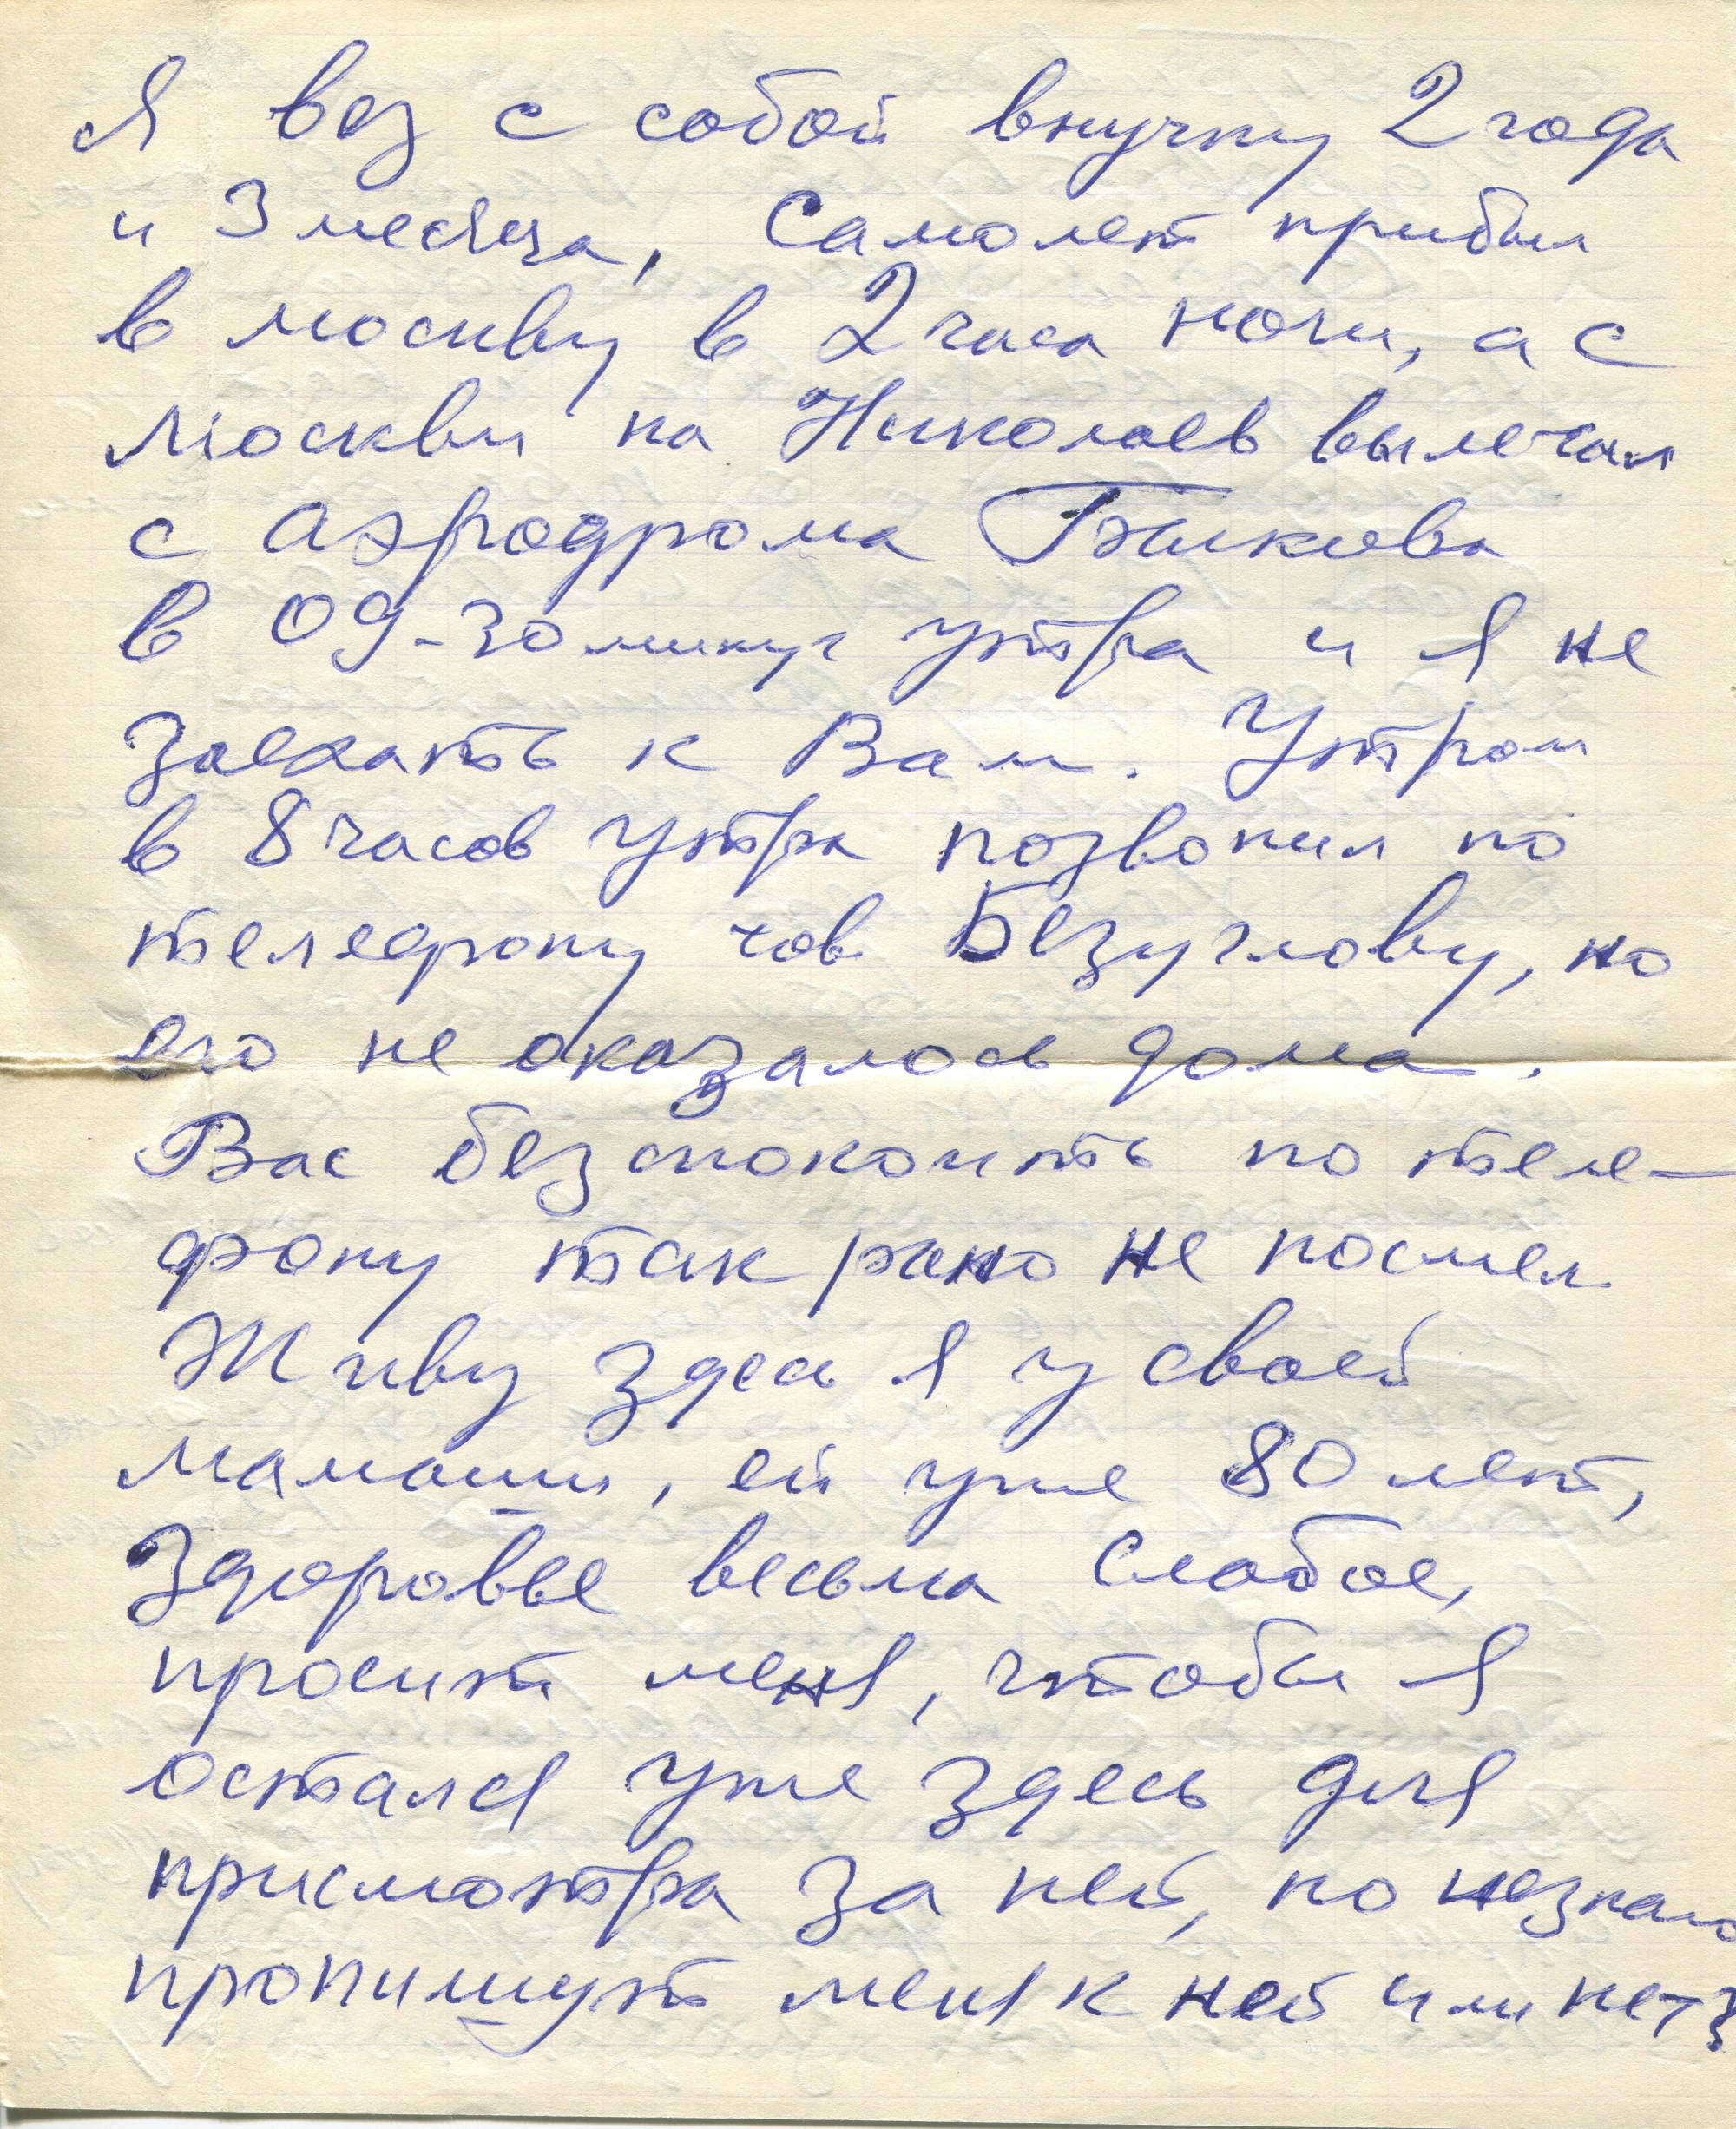 Я вез с собой внучку 2 года
и 3 месяца, Самолет прибыл
в москву в 2 часа ночи, а с
Москвы на Николаев вылетал
с аэродрома Быкова
в 09-30 минут утра и я не
заехать к Вам. Утром
в 8 часов утра позвонил по
телефону тов Безуглову, но
его не оказалось дома.
Вас безпокоить по теле-
фону так рано не посмел
Живу здесь я у своей
мамаши, ей уже 80 лет,
Здоровье весьма слабое,
просит меня, чтобы я
остался уже здесь для
присмотра за ней, но незнаю
пропишут меня к ней или нет?